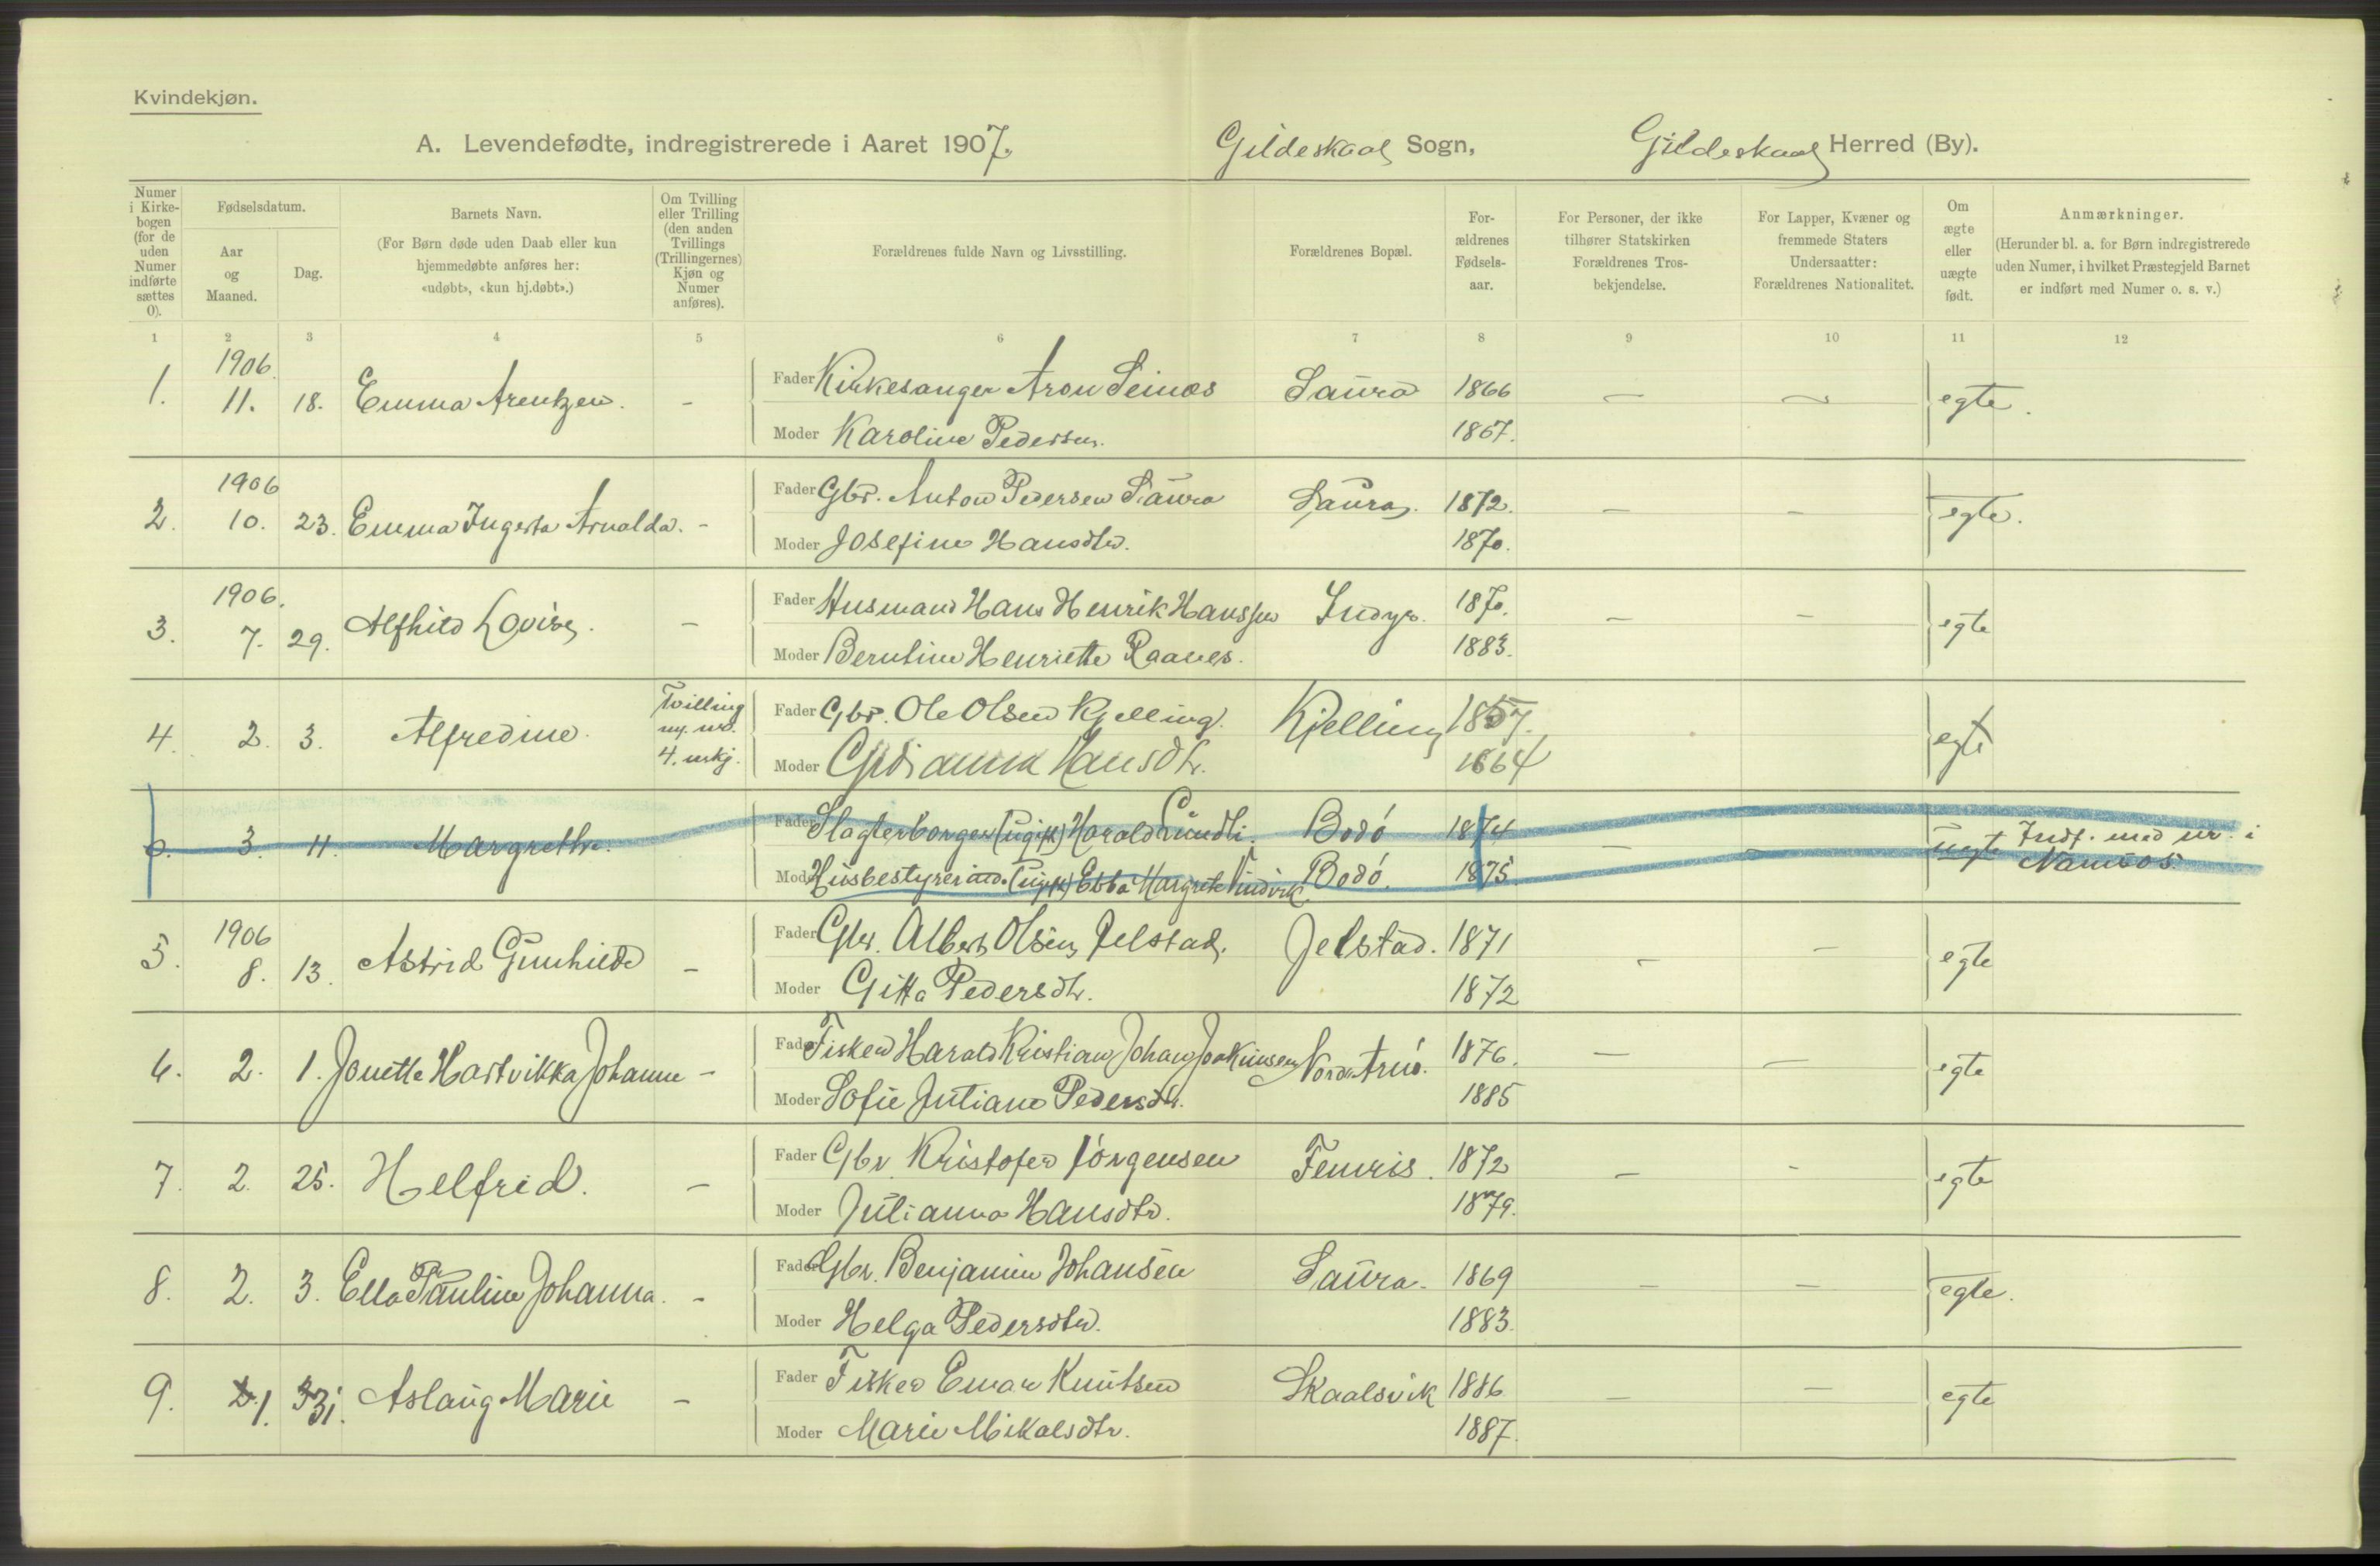 Kvindekjøn.
A. Levendefødte, indregistrerede i Aaret 1907. Gildeskaal Sogn, Gildeskaal Herred (By).
Numer i Kirkebogen (for de uden Numer indførte sættes 0).
Fødselsdatum.
Aar og Maaned.
Dag.
Barnets Navn.
(For Børn døde uden Daab eller kun hjemmedøbte anføres her: «udøbt», «kun hj.døbt».)
Om Tvilling eller Trilling (den anden Tvillings (Trillingernes) Kjøn og Numer anføres).
Forældrenes fulde Navn og Livsstilling.
Forældrenes Bopæl.
Forældrenes Fødselsaar.
For Personer, der ikke tilhører Statskirken Forældrenes Trosbekjendelse.
For Lapper, Kvæner og fremmede Staters Undersaatter: Forældrenes Nationalitet.
Om ægte eller uægte født.
Anmærkninger.
(Herunder bl. a. for Børn indregistrerede uden Numer, i hvilket Præstegjeld Barnet er indført med Numer o. s. v.)
1 2 3 4 5 6 7 8 9 10 11 12
1906.
1. 11. 18. Emma Arentzen. - Fader Kirkesanger Aron Seines Saura 1866 - - egte.
Moder Karoline Pedersen. 1867.
1906
2. 10. 23. Emma Ingerta Arnalda. - Fader Gbr. Anton Pedersen Saura Saura. 1872. - - egte.
Moder Josefine Hansdtr. 1870.
1906.
3. 7. 29. Alfhild Lovise. - Fader Husmand Hans Henrik Hanssen Indyr. 1870. - - egte
Moder Berntine Henriette Raanes. 1883.
4. 2. 3. Alfredine. Tvilling m. nr. 4. mkj. Fader Gbr. Ole Olsen Kjelling. Kjelling 1857. egte
Moder Hansdtr. 1864
0. 3. 11. Margrethe. Fader Slagterborger (ugift) Harald Lundli. Bodó 1874 - - uegte Indf. med nr. i Namsos.
Moder Husbestyrerinde (ugift) Ebba Margrete Vindvik. Bodó. 1875
1906
5. 8. 13. Astrid Gunhilde - Fader Gbr. Albert Olsen Jelstad. Jelstad. 1871 - - egte
Moder Gitta Pedersdtr. 1872
6. 2. 1. Jonette Hartvikka Johanne - Fader Fisker Harald Kristian Johan Joakimsen Nordre Arnó. 1876. - - egte
Moder Sofie Juliane Pedersdtr. 1885
7. 2. 25. Helfrid. - Fader Gbr. Kristofer Jörgensen Femris. 1872 - - egte
Moder Julianna Hansdtr. 1879.
8. 2. 3. Ella Pauline Johanna. - Fader Gbr. Benjamin Johansen Saura. 1869 - - egte.
Moder Helga Pedersdtr. 1883.
9. 1. 31. Aslaug Marie - Fader Fisker Einar Knutsen Skaalsvik 1886 - - egte
Moder Marie Mikalsdtr. 1887.